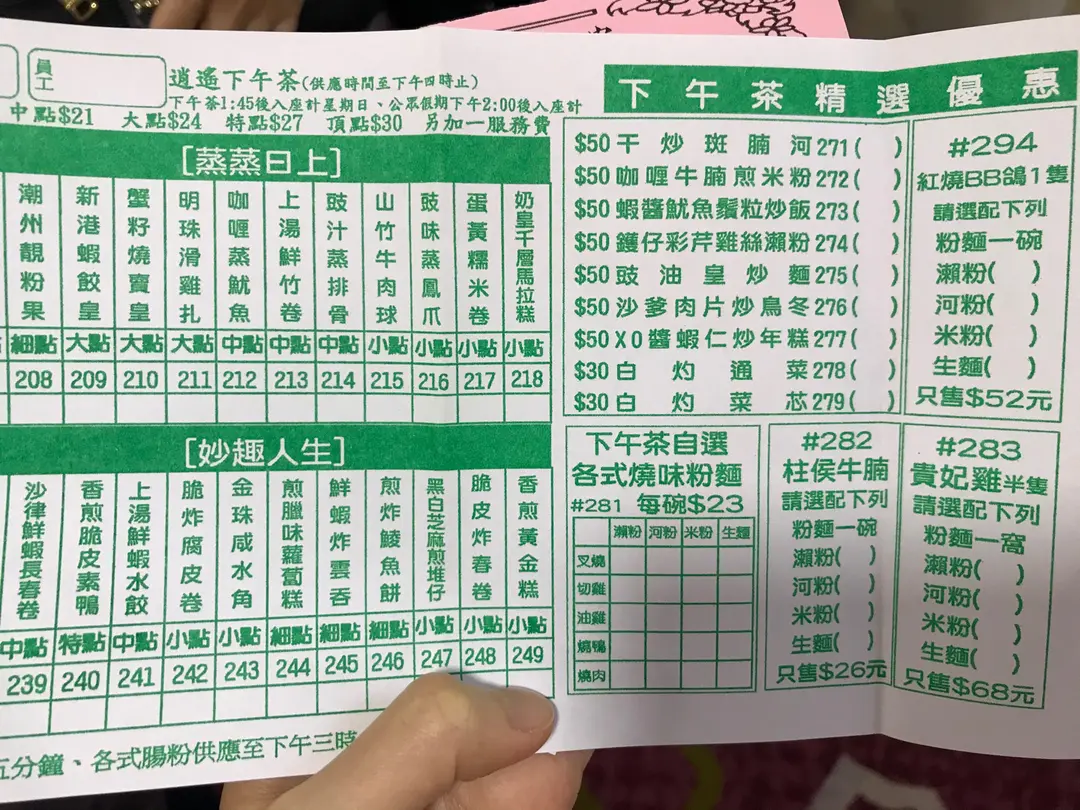 員工
逍遙下午茶(供應時間至下午四時止)
下午茶1:45後入座計星期日、公眾假期下午2:00後入座計
中點$21 大點$24 特點$27 頂點$30 另加一服務費
[蒸蒸日上]
潮州靚粉果 細點 208
新港蝦餃皇 大點 209
蟹籽燒賣皇 大點 210
明珠滑雞扎 大點 211
咖喱蒸魷魚 中點 212
上湯鮮竹卷 中點 213
豉汁蒸排骨 中點 214
山竹牛肉球 小點 215
豉味蒸鳳爪 小點 216
蛋黃糯米卷 小點 217
奶皇千層馬拉糕 小點 218
[妙趣人生]
沙律鮮蝦長春卷 中點 239
香煎脆皮素鴨 特點 240
上湯鮮蝦水餃 中點 241
脆炸腐皮卷 小點 242
金珠咸水角 小點 243
煎臘味蘿蔔糕 細點 244
鮮蝦炸雲吞 細點 245
煎炸鯪魚餅 細點 246
黑白芝麻煎堆仔 小點 247
脆皮炸春卷 小點 248
香煎黃金糕 小點 249
五分鐘、各式腸粉供應至下午三時
下午茶精選優惠
$50干炒斑腩河271( )
$50咖喱牛腩煎米粉272( )
$50蝦醬魷魚鬚粒炒飯273( )
$50鑊仔彩芹雞絲瀨粉274( )
$50豉油皇炒麵275( )
$50沙爹肉片炒烏冬276( )
$50XO醬蝦仁炒年糕277( )
$30白灼通菜278( )
$30白灼菜芯279( )
#294
紅燒BB鴿1隻
請選配下列
粉麵一碗
瀨粉( )
河粉( )
米粉( )
生麵( )
只售$52元
下午茶自選
各式燒味粉麵
#281 每碗$23
瀨粉 河粉 米粉 生麵
叉燒
切雞
油雞
燒鴨
燒肉
#282
柱侯牛腩
請選配下列
粉麵一碗
瀨粉( )
河粉( )
米粉( )
生麵( )
只售$26元
#283
貴妃雞半隻
請選配下列
粉麵一窩
瀨粉( )
河粉( )
米粉( )
生麵( )
只售$68元